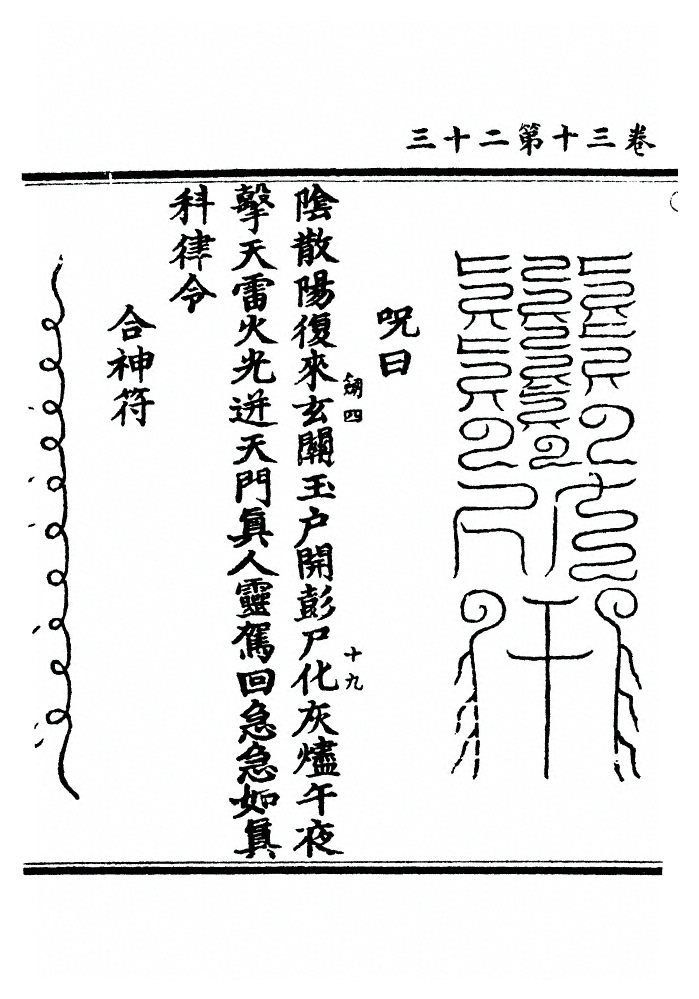 卷三十第二十三
呪曰
陰散陽復來玄關玉户開彭尸化灰燼午夜
四
十九
擊天雷火光迸天門眞人靈駕回急急如眞
科律令
合神符